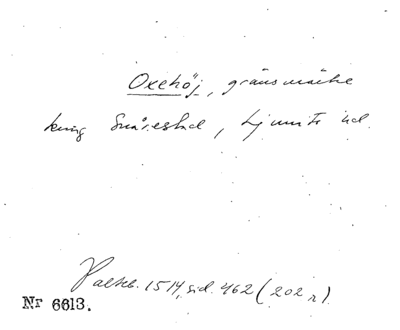 Oxehöj, gränsmärke
kring Snårestad, Ljunits hd.
Palteb. 1514, sid. 462 (202 r).
Nr 6613.